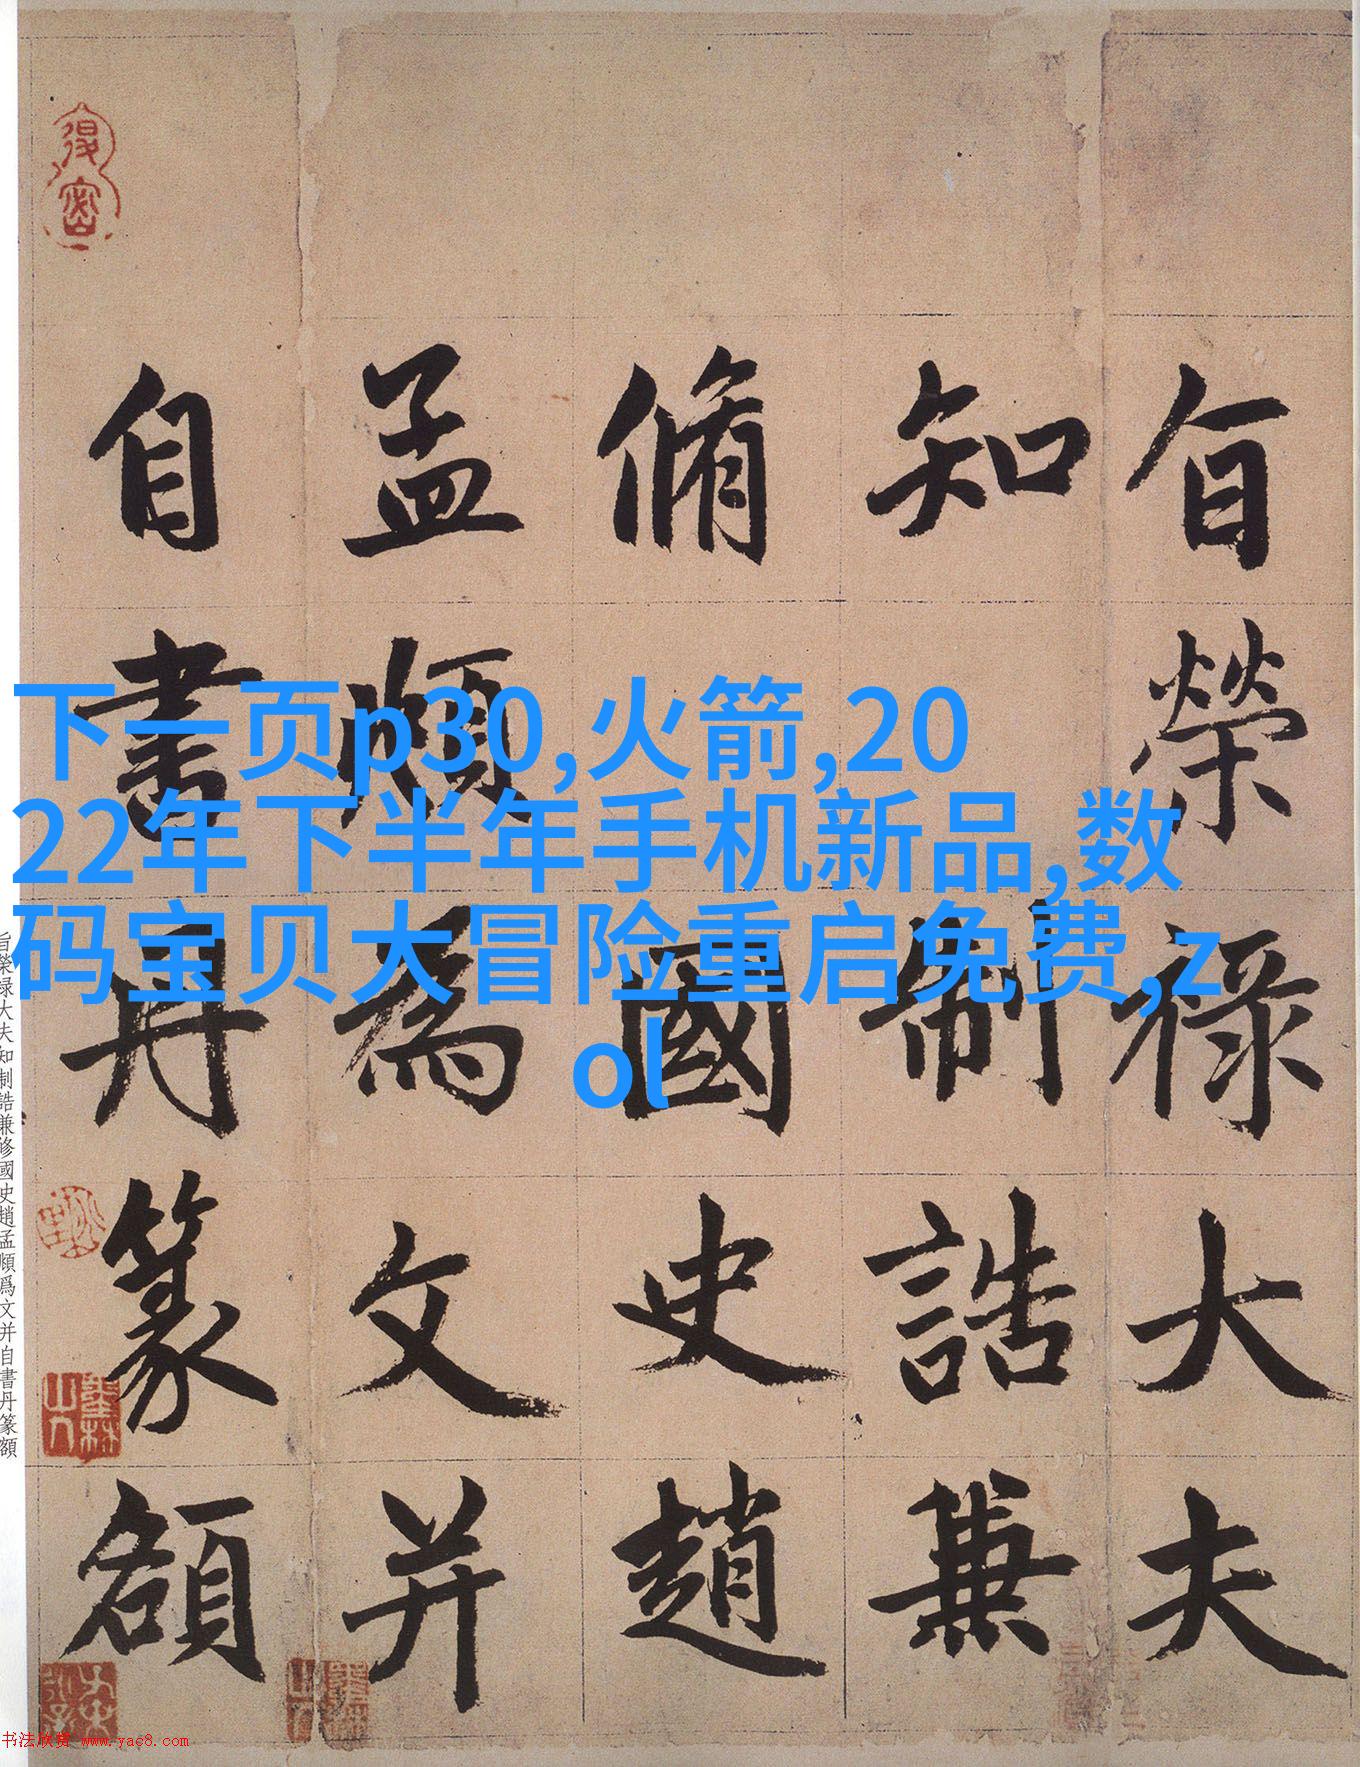 下一页p30,火箭,20
22年下半年手机新品,数
码宝贝大冒险重启免费,z
ol
旨榮祿大夫
知制誥兼
脩國史趙
孟頫為文并
自書丹篆額
旨榮禄大夫知制誥兼修國史趙孟頫爲文并自書丹篆額
书法欣赏 www.yac8.com